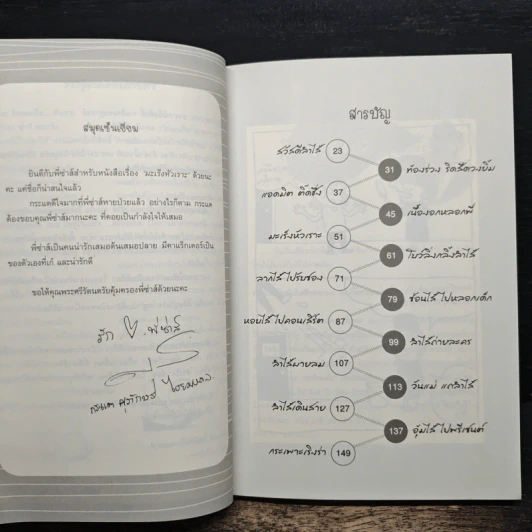 สมุดเซ็นเยี่ยม
ยินดีกับพี่ซ่าส์สำหรับหนังสือเรื่อง "มะเร็งหัวเราะ" ด้วยนะ
คะ แค่ชื่อก็น่าสนใจแล้ว
กระแตดีใจมากที่พี่ซ่าส์หายป่วยแล้ว อย่างไรก็ตาม กระแต
ต้องขอบคุณพี่ซ่าส์มากนะคะ ที่คอยเป็นกำลังใจให้เสมอ
พี่ซ่าส์เป็นคนน่ารักเสมอต้นเสมอปลาย มีคาแร็กเตอร์เป็น
ของตัวเองที่เก๋ และน่ารักดี
ขอให้คุณพระศรีรัตนตรัยคุ้มครองพี่ซ่าส์ด้วยนะคะ
รัก พี่ซ่าส์
สารบัญ
สวัสดีลำไส้ 23
31 ท้องร่วง ริดสีดวงยิ้ม
แอดมิต ติดซึ่ง 37
45 เนื้องอกหลอกพี่
มะเร็งหัวเราะ 51
61 โบว์ลิ่งกลิ้งลำไส้
ลากไส้ ไปรับซอง 71
79 ซ่อนไส้ ไปหลอกเด็ก
หอบไส้ ไปคอนเสิร์ต 87
99 ลำไส้ถ่ายละคร
ลำไส้ผายลม 107
113 วันแม่ แด่ลำไส้
ลำไส้เดินสาย 127
137 อุ้มไส้ ไปพรีเซ็นต์
กระเพาะเริงร่า 149